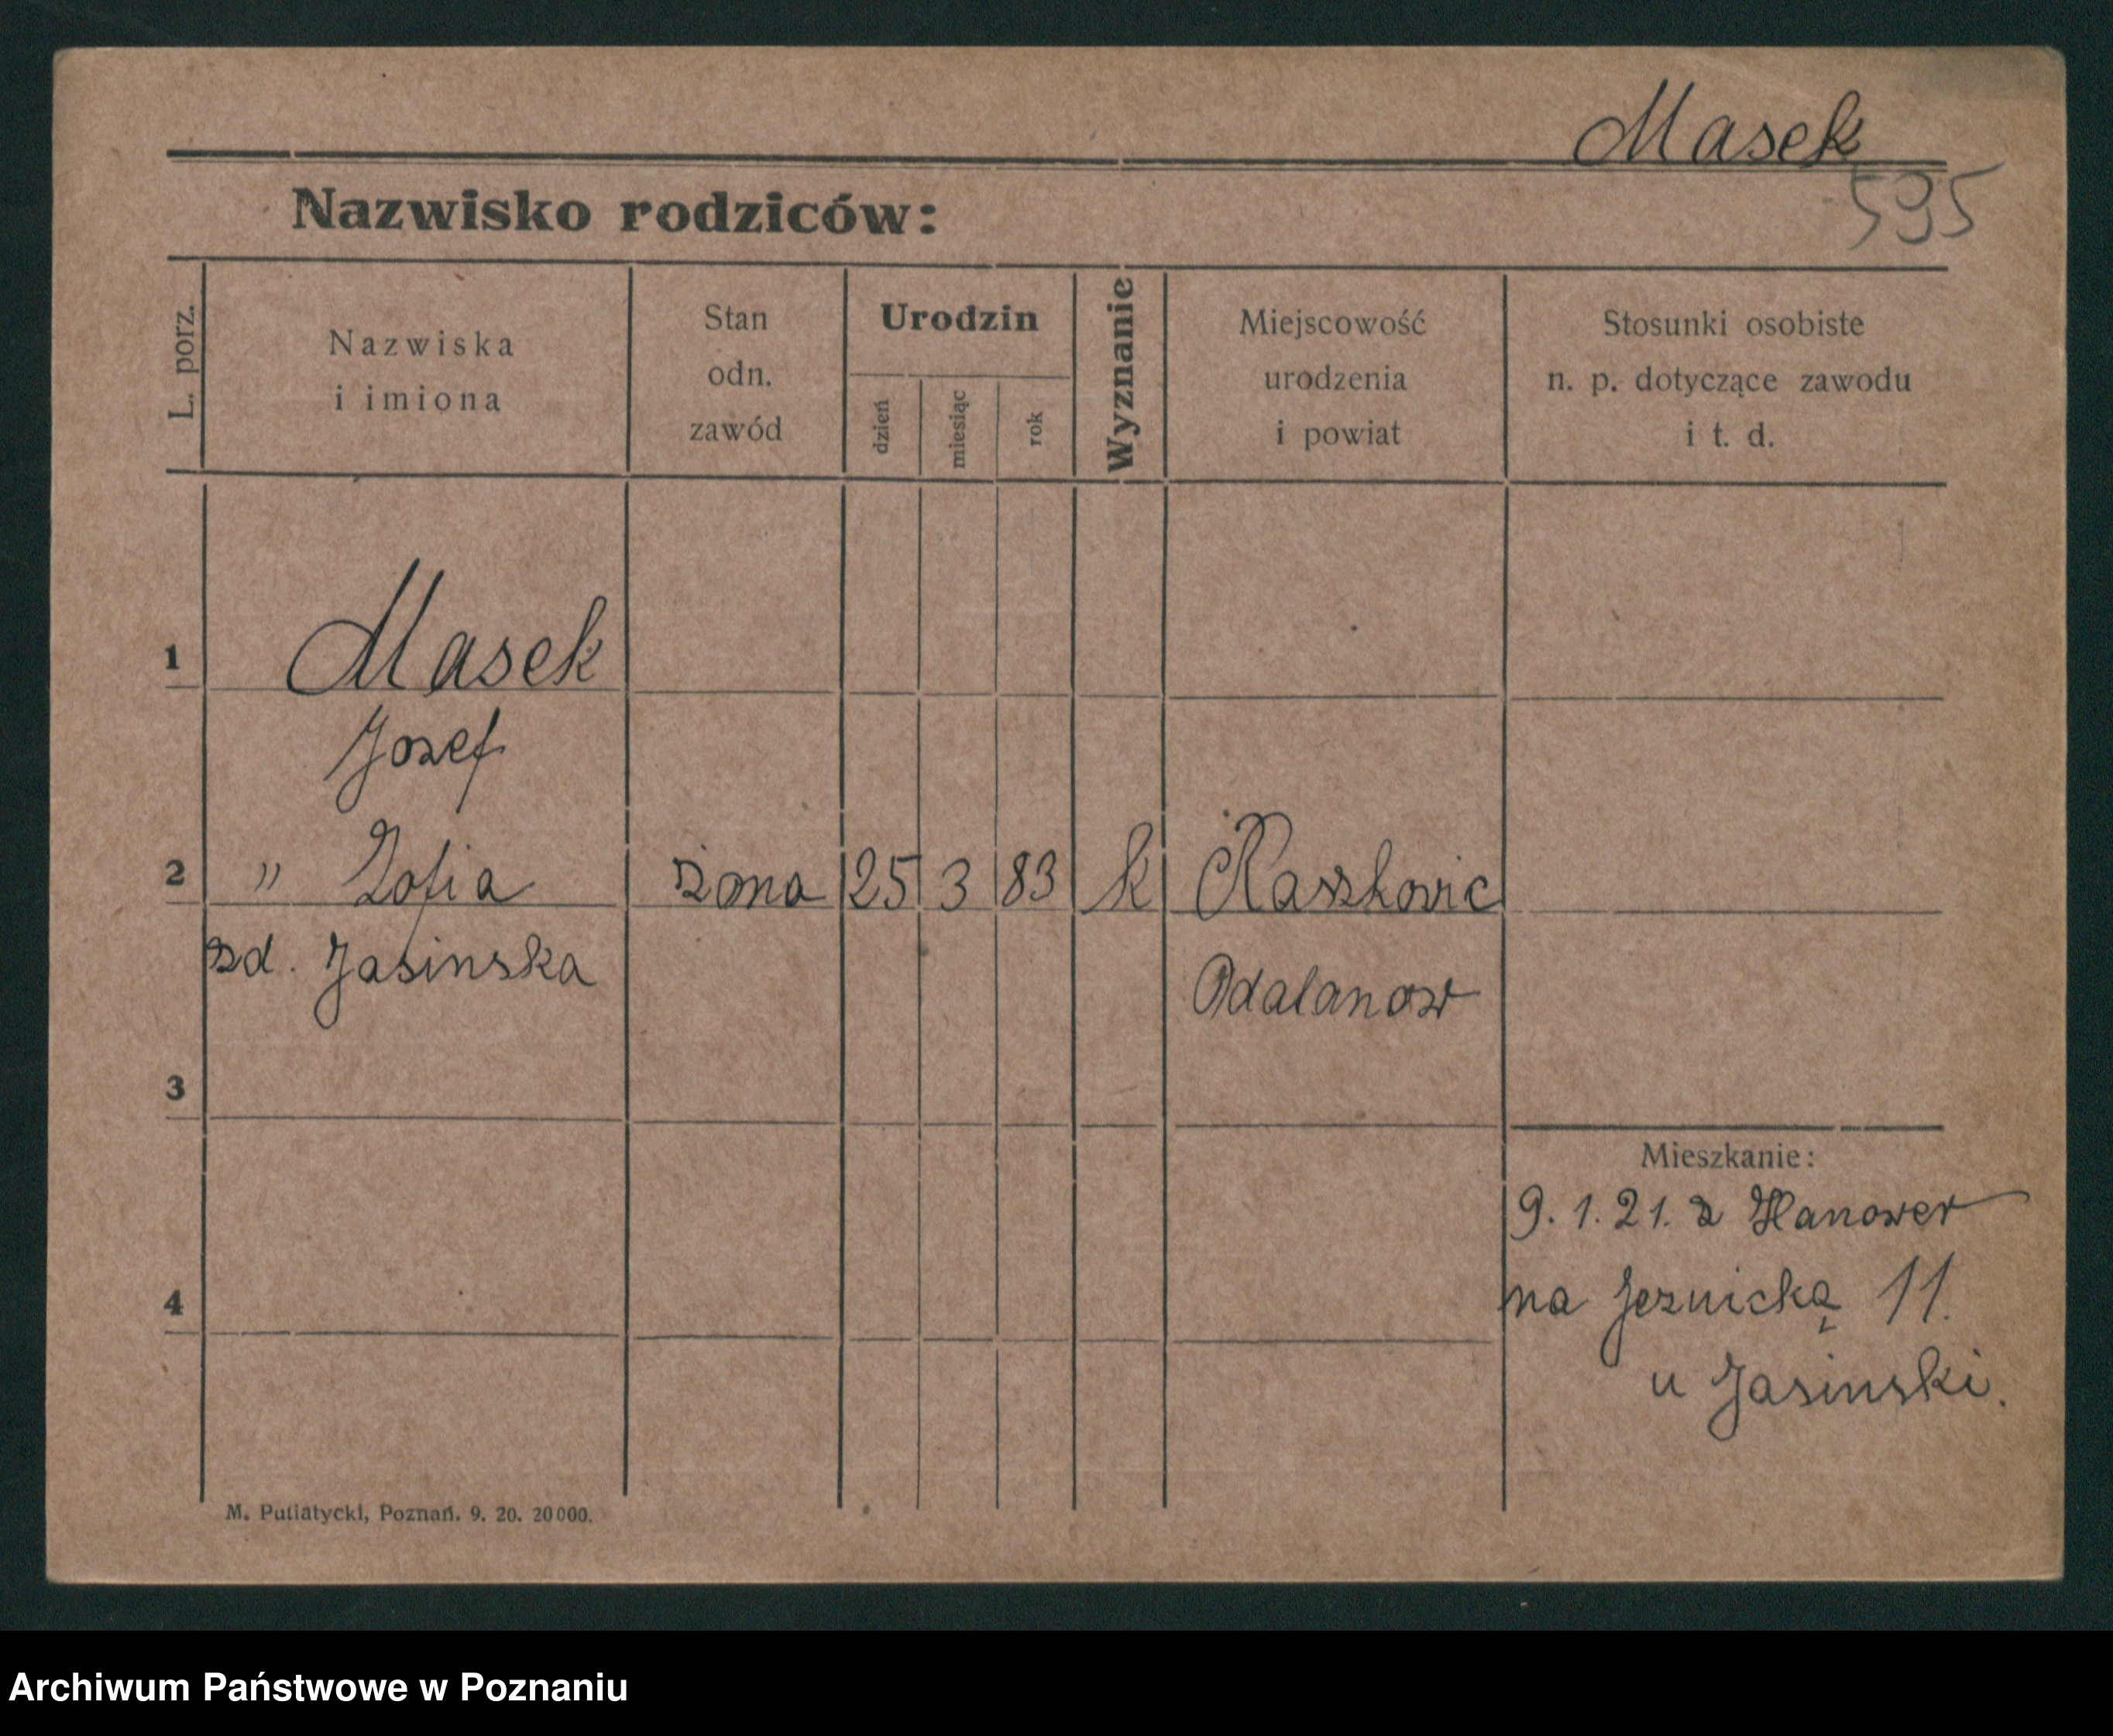 Masek
595
Nazwisko rodziców:
L. porz.
Nazwiska
i imiona
Stan
odn.
zawód
Urodzin
dzień
miesiąc
rok
Wyznanie
Miejscowość
urodzenia
i powiat
Stosunki osobiste
n. p. dotyczące zawodu
i t. d.
1 Masek
Jozef
2 " Zofia żona 25 3 83 k Raszkowic
zd. Jasinska Odalanow
3
Mieszkanie:
9. 1. 21. z Hanower
na Jeznicką 11.
4
u Jasinski.
M. Putiatycki, Poznań. 9. 20. 20000.
Archiwum Państwowe w Poznaniu